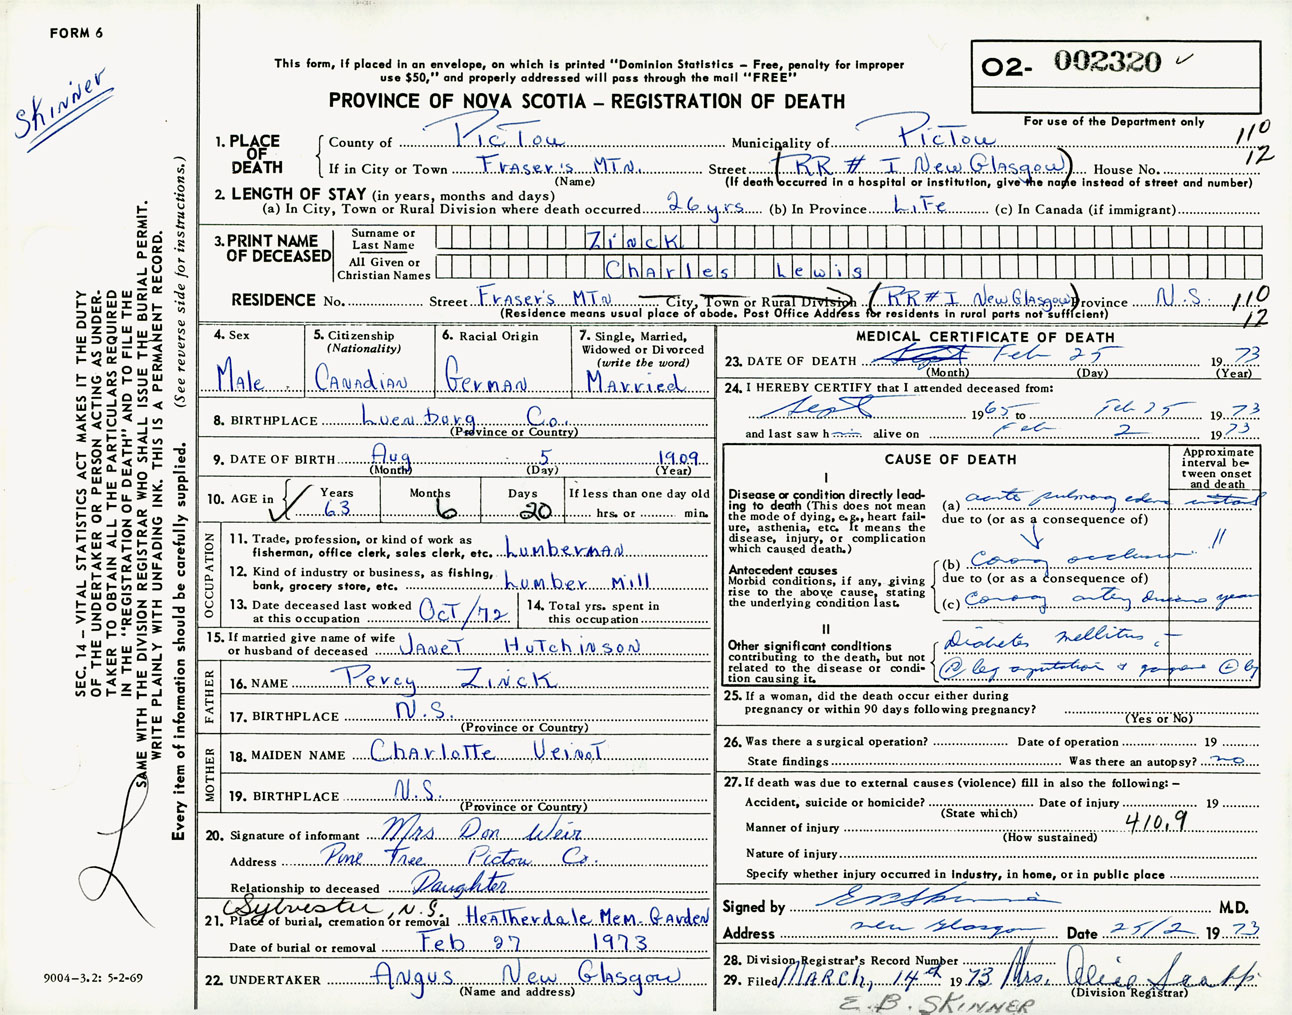 FORM 6
Skinner
This form, if placed in an envelope, on which is printed "Dominion Statistics – Free, penalty for improper
use $50," and properly addressed will pass through the mail "FREE"
PROVINCE OF NOVA SCOTIA – REGISTRATION OF DEATH
O2- 002320 ✓
For use of the Department only
110
12
1. PLACE OF DEATH
County of PicTou Municipality of PicTou
If in City or Town Fraser's MTN. Street (RR # 1 New Glasgow) House No.
(Name) (If death occurred in a hospital or institution, give the name instead of street and number)
2. LENGTH OF STAY (in years, months and days)
(a) In City, Town or Rural Division where death occurred 26 yrs (b) In Province LiFe (c) In Canada (if immigrant)
3. PRINT NAME OF DECEASED
Surname or Last Name Zinck
All Given or Christian Names Charles Lewis
RESIDENCE No. Street Fraser's MTN City, Town or Rural Division (RR # 1 New Glasgow) Province N.S. 110
(Residence means usual place of abode. Post Office Address for residents in rural parts not sufficient) 12
4. Sex
Male
5. Citizenship
(Nationality)
CANADIAN
6. Racial Origin
German
7. Single, Married,
Widowed or Divorced
(write the word)
Married
8. BIRTHPLACE Luenborg Co.
(Province or Country)
9. DATE OF BIRTH Aug 5 1909
(Month) (Day) (Year)
10. AGE in ✓ Years Months Days If less than one day old
63 6 20 hrs. or min.
OCCUPATION
11. Trade, profession, or kind of work as
fisherman, office clerk, sales clerk, etc. Lumberman
12. Kind of industry or business, as fishing,
bank, grocery store, etc. Lumber Mill
13. Date deceased last worked
at this occupation Oct/72
14. Total yrs. spent in
this occupation
15. If married give name of wife
or husband of deceased Janet Hutchinson
FATHER
16. NAME Percy Zinck
17. BIRTHPLACE N.S.
(Province or Country)
MOTHER
18. MAIDEN NAME Charlotte Veinot
19. BIRTHPLACE N.S.
(Province or Country)
20. Signature of informant Mrs Don Weir
Address Pine Tree Pictou Co.
Relationship to deceased Daughter
(Sylvester, N.S.
21. Place of burial, cremation or removal Heatherdale Mem. Garden
Date of burial or removal Feb 27 1973
22. UNDERTAKER Angus New Glasgow
(Name and address)
MEDICAL CERTIFICATE OF DEATH
23. DATE OF DEATH Feb 25 1973
(Month) (Day) (Year)
24. I HEREBY CERTIFY that I attended deceased from:
Sept 1965 to Feb 25 1973
and last saw h alive on Feb 2 1973
CAUSE OF DEATH
Approximate
interval be-
tween onset
and death
I
Disease or condition directly lead-
ing to death (This does not mean
the mode of dying, e.g., heart fail-
ure, asthenia, etc. It means the
disease, injury, or complication
which caused death.)
(a) acute pulmonary edema instant
due to (or as a consequence of)
Antecedent causes
Morbid conditions, if any, giving
rise to the above cause, stating
the underlying condition last.
(b) Coronary occlusion "
due to (or as a consequence of)
(c) Coronary artery disease years
II
Other significant conditions
contributing to the death, but not
related to the disease or condi-
tion causing it.
Diabetes mellitus
(R) leg amputation & gangrene (L) leg
25. If a woman, did the death occur either during
pregnancy or within 90 days following pregnancy?
(Yes or No)
26. Was there a surgical operation? Date of operation 19
State findings Was there an autopsy? no
27. If death was due to external causes (violence) fill in also the following: –
Accident, suicide or homicide? Date of injury 19
(State which)
Manner of injury 410.9
(How sustained)
Nature of injury
Specify whether injury occurred in Industry, in home, or in public place
Signed by EBSkinner M.D.
Address New Glasgow Date 25/2 1973
28. Division Registrar's Record Number
29. Filed MARCH, 14th 1973 Mrs. Alice
(Division Registrar)
E. B. SKINNER
SEC. 14 – VITAL STATISTICS ACT MAKES IT THE DUTY
OF THE UNDERTAKER OR PERSON ACTING AS UNDER-
TAKER TO OBTAIN ALL THE PARTICULARS REQUIRED
IN THE "REGISTRATION OF DEATH" AND TO FILE THE
SAME WITH THE DIVISION REGISTRAR WHO SHALL ISSUE THE BURIAL PERMIT.
WRITE PLAINLY WITH UNFADING INK. THIS IS A PERMANENT RECORD.
Every item of information should be carefully supplied. (See reverse side for instructions.)
9004–3.2: 5-2-69